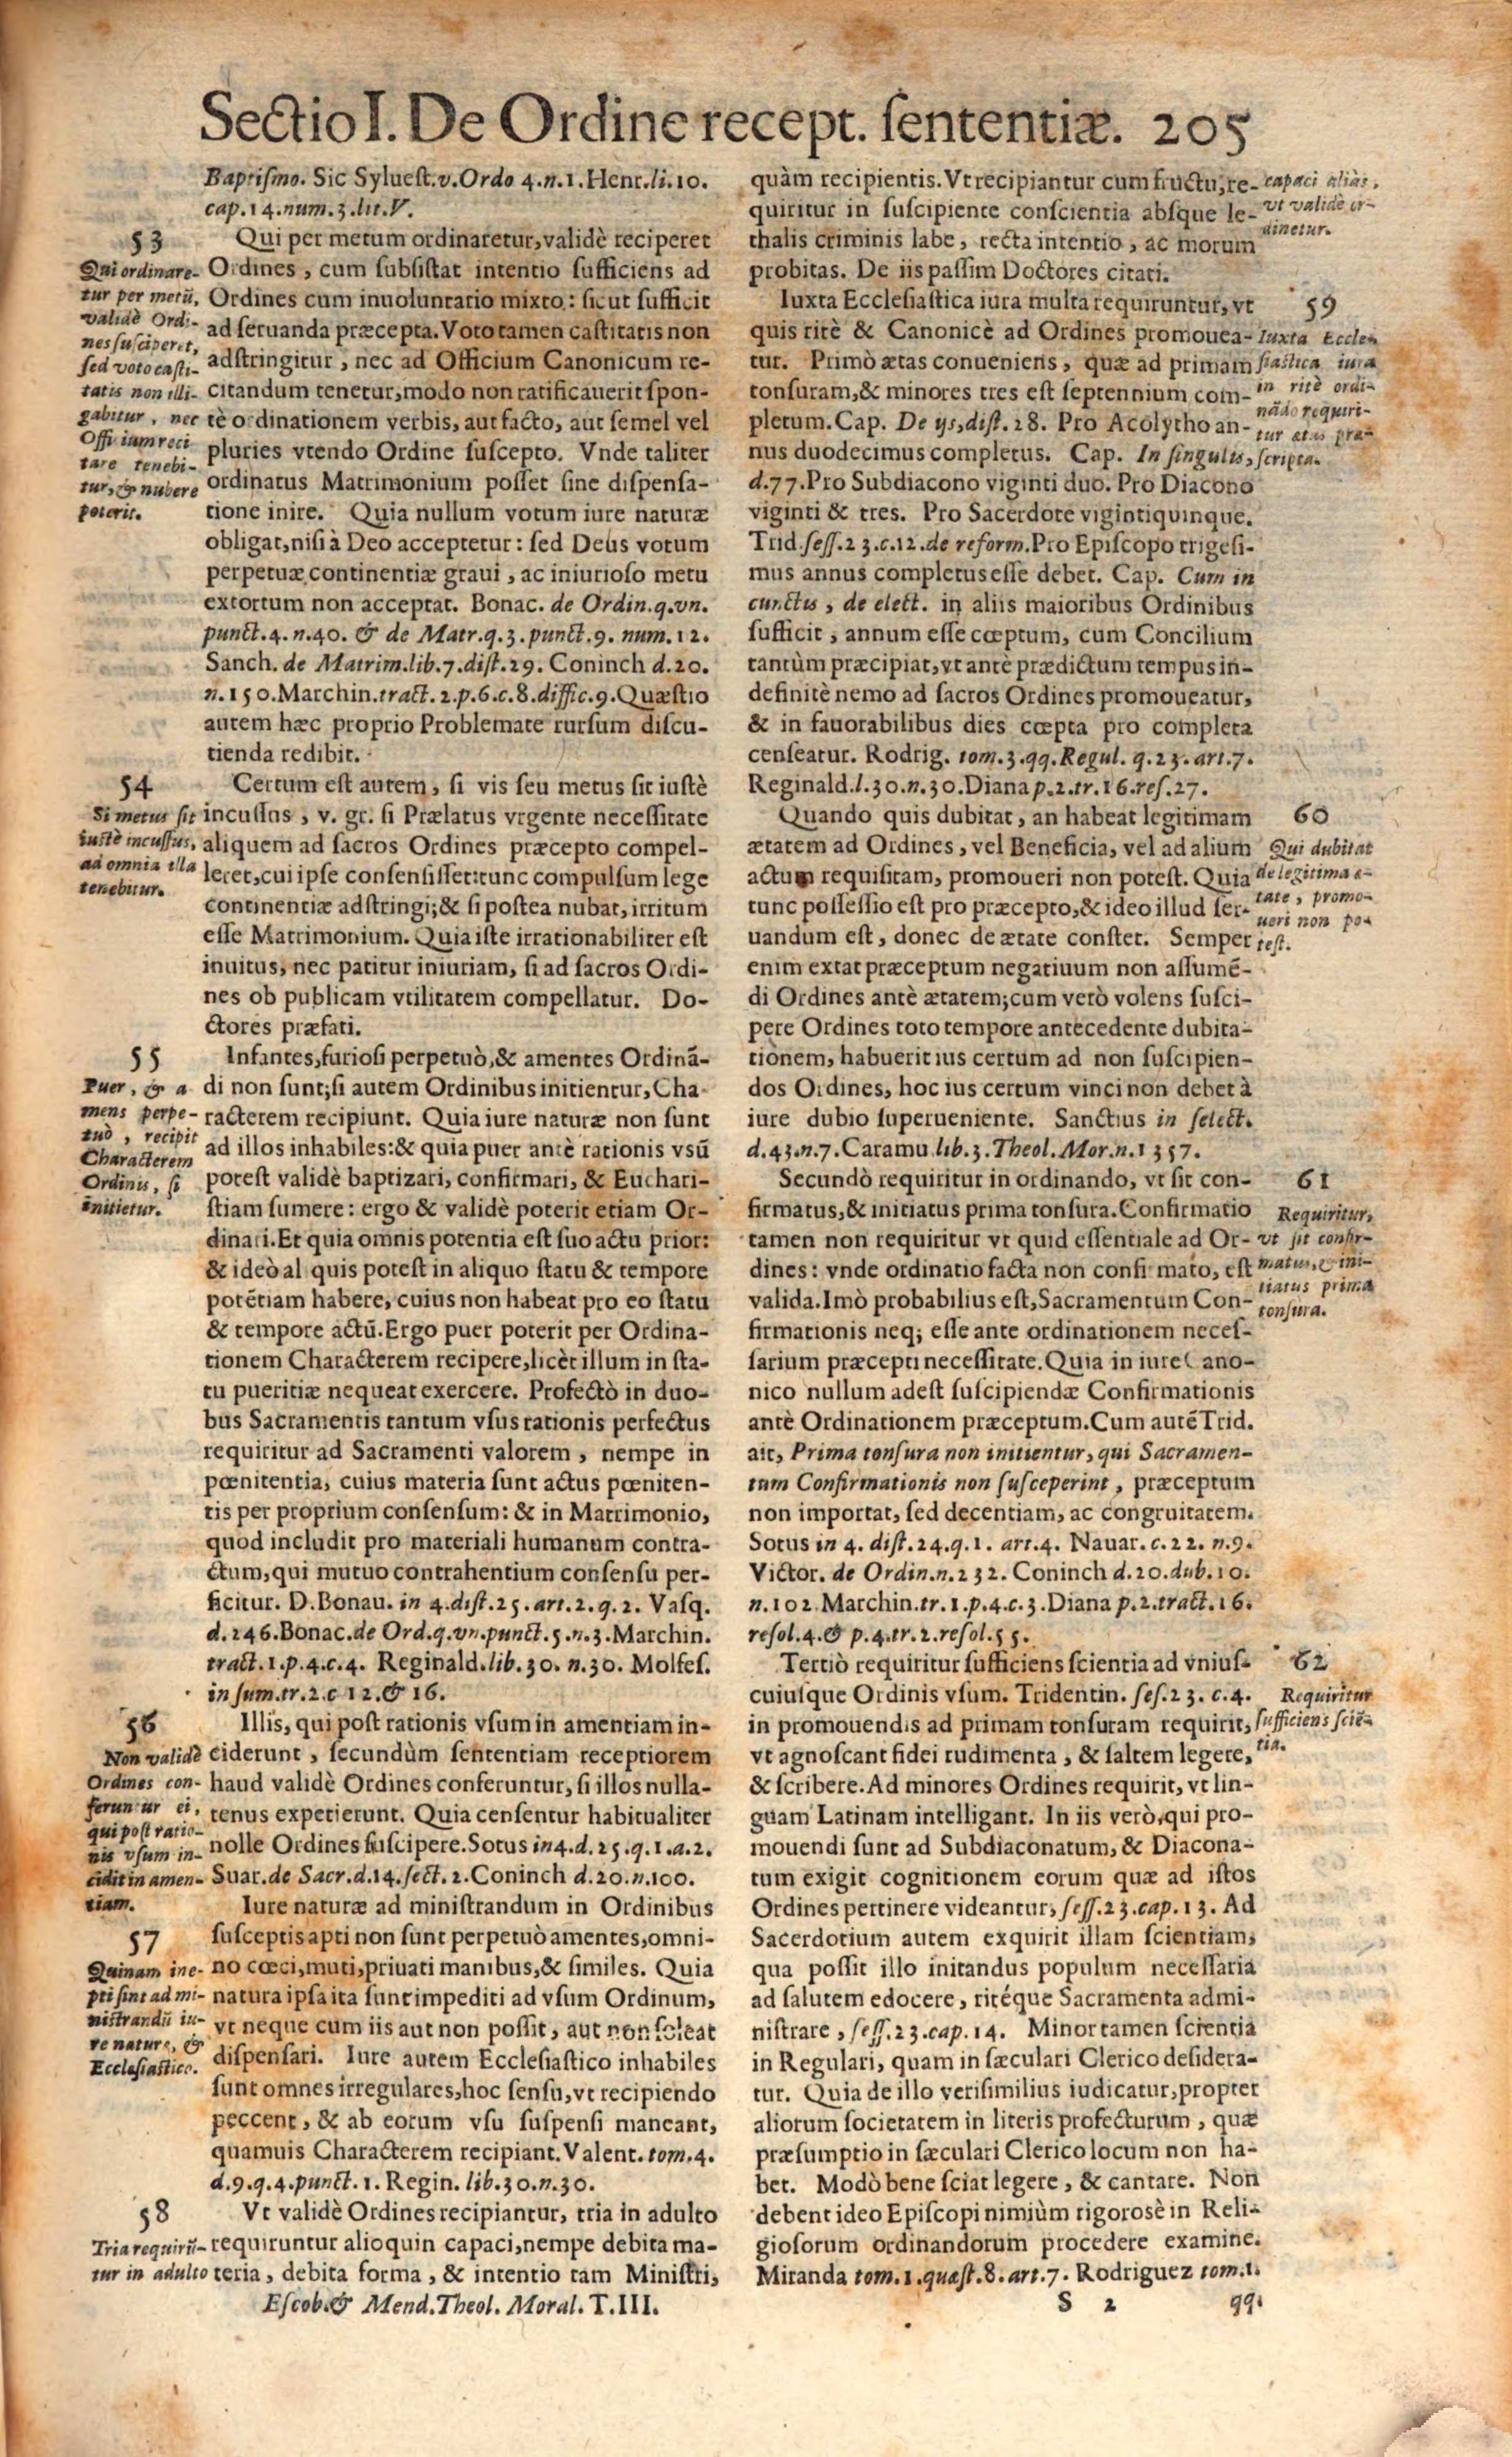 Sectio I. De Ordine recept. sententiæ. 205
Baptismo. Sic Syluest. v. Ordo 4. n. 1. Henr. li. 10.
cap. 14. num. 3. lit. V.
53
Qui ordinare-
tur per metũ,
validè Ordi-
nes susciperet,
sed voto casti-
tatis non illi-
gabitur, nec
Officium reci
tare tenebi-
tur, & nubere
poterit.
Qui per metum ordinaretur, validè reciperet
Ordines, cum subsistat intentio sufficiens ad
Ordines cum inuoluntario mixto: sicut sufficit
ad seruanda præcepta. Voto tamen castitatis non
adstringitur, nec ad Officium Canonicum re-
citandum tenetur, modo non ratificauerit spon-
tè ordinationem verbis, aut facto, aut semel vel
pluries vtendo Ordine suscepto. Vnde taliter
ordinatus Matrimonium posset sine dispensa-
tione inire. Quia nullum votum iure naturæ
obligat, nisi à Deo acceptetur: sed Deus votum
perpetuæ continentiæ graui, ac iniurioso metu
extortum non acceptat. Bonac. de Ordin. q. vn.
punct. 4. n. 40. & de Matr. q. 3. punct. 9. num. 12.
Sanch. de Matrim. lib. 7. dist. 29. Coninch d. 20.
n. 150. Marchin. tract. 2. p. 6. c. 8. diffic. 9. Quæstio
autem hæc proprio Problemate rursum discu-
tienda redibit.
54
Si metus sit
iustè incussus,
ad omnia illa
tenebitur.
Certum est autem, si vis seu metus sit iustè
incussus, v. gr. si Prælatus vrgente necessitate
aliquem ad sacros Ordines præcepto compel-
leret, cui ipse consensisset: tunc compulsum lege
continentiæ adstringi; & si postea nubat, irritum
esse Matrimonium. Quia iste irrationabiliter est
inuitus, nec patitur iniuriam, si ad sacros Ordi-
nes ob publicam vtilitatem compellatur. Do-
ctores præfati.
55
Puer, & a
mens perpe-
tuò, recipit
Characterem
Ordinis, si
initietur.
Infantes, furiosi perpetuò, & amentes Ordinã-
di non sunt; si autem Ordinibus initientur, Cha-
racterem recipiunt. Quia iure naturæ non sunt
ad illos inhabiles: & quia puer antè rationis vsũ
potest validè baptizari, confirmari, & Euchari-
stiam sumere: ergo & validè poterit etiam Or-
dinari. Et quia omnis potentia est suo actu prior:
& ideò al quis potest in aliquo statu & tempore
potẽtiam habere, cuius non habeat pro eo statu
& tempore actũ. Ergo puer poterit per Ordina-
tionem Characterem recipere, licèt illum in sta-
tu pueritiæ nequeat exercere. Profectò in duo-
bus Sacramentis tantum vsus rationis perfectus
requiritur ad Sacramenti valorem, nempe in
pœnitentia, cuius materia sunt actus pœniten-
tis per proprium consensum: & in Matrimonio,
quod includit pro materiali humanum contra-
ctum, qui mutuo contrahentium consensu per-
ficitur. D. Bonau. in 4. dist. 25. art. 2. q. 2. Vasq.
d. 246. Bonac. de Ord. q. vn. punct. 5. n. 3. Marchin.
tract. 1. p. 4. c. 4. Reginald. lib. 30. n. 30. Molfes.
in sum. tr. 2. c 12. & 16.
56
Non validè
Ordines con-
ferun ur ei,
qui post ratio-
nis vsum in-
cidit in amen-
tiam.
Illis, qui post rationis vsum in amentiam in-
ciderunt, secundùm sententiam receptiorem
haud validè Ordines conferuntur, si illos nulla-
tenus expetierunt. Quia censentur habitualiter
nolle Ordines suscipere. Sotus in 4. d. 25. q. 1. a. 2.
Suar. de Sacr. d. 14. sect. 2. Coninch d. 20. n. 100.
57
Quinam ine-
pti sint ad mi-
nistrandũ iu-
re naturæ, &
Ecclesiastico.
Iure naturæ ad ministrandum in Ordinibus
susceptis apti non sunt perpetuò amentes, omni-
no cœci, muti, priuati manibus, & similes. Quia
natura ipsa ita sunt impediti ad vsum Ordinum,
vt neque cum iis aut non possit, aut non soleat
dispensari. Iure autem Ecclesiastico inhabiles
sunt omnes irregulares, hoc sensu, vt recipiendo
peccent, & ab eorum vsu suspensi maneant,
quamuis Characterem recipiant. Valent. tom. 4.
d. 9. q. 4. punct. 1. Regin. lib. 30. n. 30.
58
Tria requirũ-
tur in adulto
Vt validè Ordines recipiantur, tria in adulto
requiruntur alioquin capaci, nempe debita ma-
teria, debita forma, & intentio tam Ministri,
Escob. & Mend. Theol. Moral. T. III.
quàm recipientis. Vt recipiantur cum fructu, re-
quiritur in suscipiente conscientia absque le-
thalis criminis labe, recta intentio, ac morum
probitas. De iis passim Doctores citati.
capaci aliàs,
vt validè or-
dinetur.
Iuxta Ecclesiastica iura multa requiruntur, vt
quis ritè & Canonicè ad Ordines promouea-
tur. Primò ætas conueniens, quæ ad primam
tonsuram, & minores tres est septennium com-
pletum. Cap. De iis, dist. 28. Pro Acolytho an-
nus duodecimus completus. Cap. In singulis,
d. 77. Pro Subdiacono viginti duo. Pro Diacono
viginti & tres. Pro Sacerdote vigintiquinque.
Trid. sess. 23. c. 12. de reform. Pro Episcopo trigesi-
mus annus completus esse debet. Cap. Cum in
cunctis, de elect. in aliis maioribus Ordinibus
sufficit, annum esse cœptum, cum Concilium
tantùm præcipiat, vt antè prædictum tempus in-
definitè nemo ad sacros Ordines promoueatur,
& in fauorabilibus dies cœpta pro completa
censeatur. Rodrig. tom. 3. qq. Regul. q. 23. art. 7.
Reginald. l. 30. n. 30. Diana p. 2. tr. 16. res. 27.
59
Iuxta Eccle-
siastica iura
in ritè ordi-
nãdo requiri-
tur ætas præ-
scripta.
Quando quis dubitat, an habeat legitimam
ætatem ad Ordines, vel Beneficia, vel ad alium
actum requisitam, promoueri non potest. Quia
tunc possessio est pro præcepto, & ideo illud ser-
uandum est, donec de ætate constet. Semper
enim extat præceptum negatiuum non assumẽ-
di Ordines antè ætatem; cum verò volens susci-
pere Ordines toto tempore antecedente dubita-
tionem, habuerit ius certum ad non suscipien-
dos Ordines, hoc ius certum vinci non debet à
iure dubio superueniente. Sanctius in select.
d. 43. n. 7. Caramu. lib. 3. Theol. Mor. n. 1357.
60
Qui dubitat
de legitima æ-
tate, promo-
ueri non po-
test.
Secundò requiritur in ordinando, vt sit con-
firmatus, & initiatus prima tonsura. Confirmatio
tamen non requiritur vt quid essentiale ad Or-
dines: vnde ordinatio facta non confi mato, est
valida. Imò probabilius est, Sacramentum Con-
firmationis neq; esse ante ordinationem neces-
sarium præcepti necessitate. Quia in iure Cano-
nico nullum adest suscipiendæ Confirmationis
antè Ordinationem præceptum. Cum autẽ Trid.
ait, Prima tonsura non initientur, qui Sacramen-
tum Confirmationis non susceperint, præceptum
non importat, sed decentiam, ac congruitatem.
Sotus in 4. dist. 24. q. 1. art. 4. Nauar. c. 22. n. 9.
Victor. de Ordin. n. 232. Coninch d. 20. dub. 10.
n. 102. Marchin. tr. 1. p. 4. c. 3. Diana p. 2. tract. 16.
resol. 4. & p. 4. tr. 2. resol. 55.
61
Requiritur,
vt sit confir-
matus, & ini-
tiatus prima
tonsura.
Tertiò requiritur sufficiens scientia ad vnius-
cuiusque Ordinis vsum. Tridentin. ses. 23. c. 4.
in promouendis ad primam tonsuram requirit,
vt agnoscant fidei rudimenta, & saltem legere,
& scribere. Ad minores Ordines requirit, vt lin-
guam Latinam intelligant. In iis verò, qui pro-
mouendi sunt ad Subdiaconatum, & Diacona-
tum exigit cognitionem eorum quæ ad istos
Ordines pertinere videantur, sess. 23. cap. 13. Ad
Sacerdotium autem exquirit illam scientiam,
qua possit illo initandus populum necessaria
ad salutem edocere, ritéque Sacramenta admi-
nistrare, sess. 23. cap. 14. Minor tamen scientia
in Regulari, quam in sæculari Clerico desidera-
tur. Quia de illo verisimilius iudicatur, propter
aliorum societatem in literis profecturum, quæ
præsumptio in sæculari Clerico locum non ha-
bet. Modò bene sciat legere, & cantare. Non
debent ideo Episcopi nimiùm rigorosè in Reli-
giosorum ordinandorum procedere examine.
Miranda tom. 1. quæst. 8. art. 7. Rodriguez tom. 1.
62
Requiritur
sufficiens sciẽ-
tia.
S 2
qq.